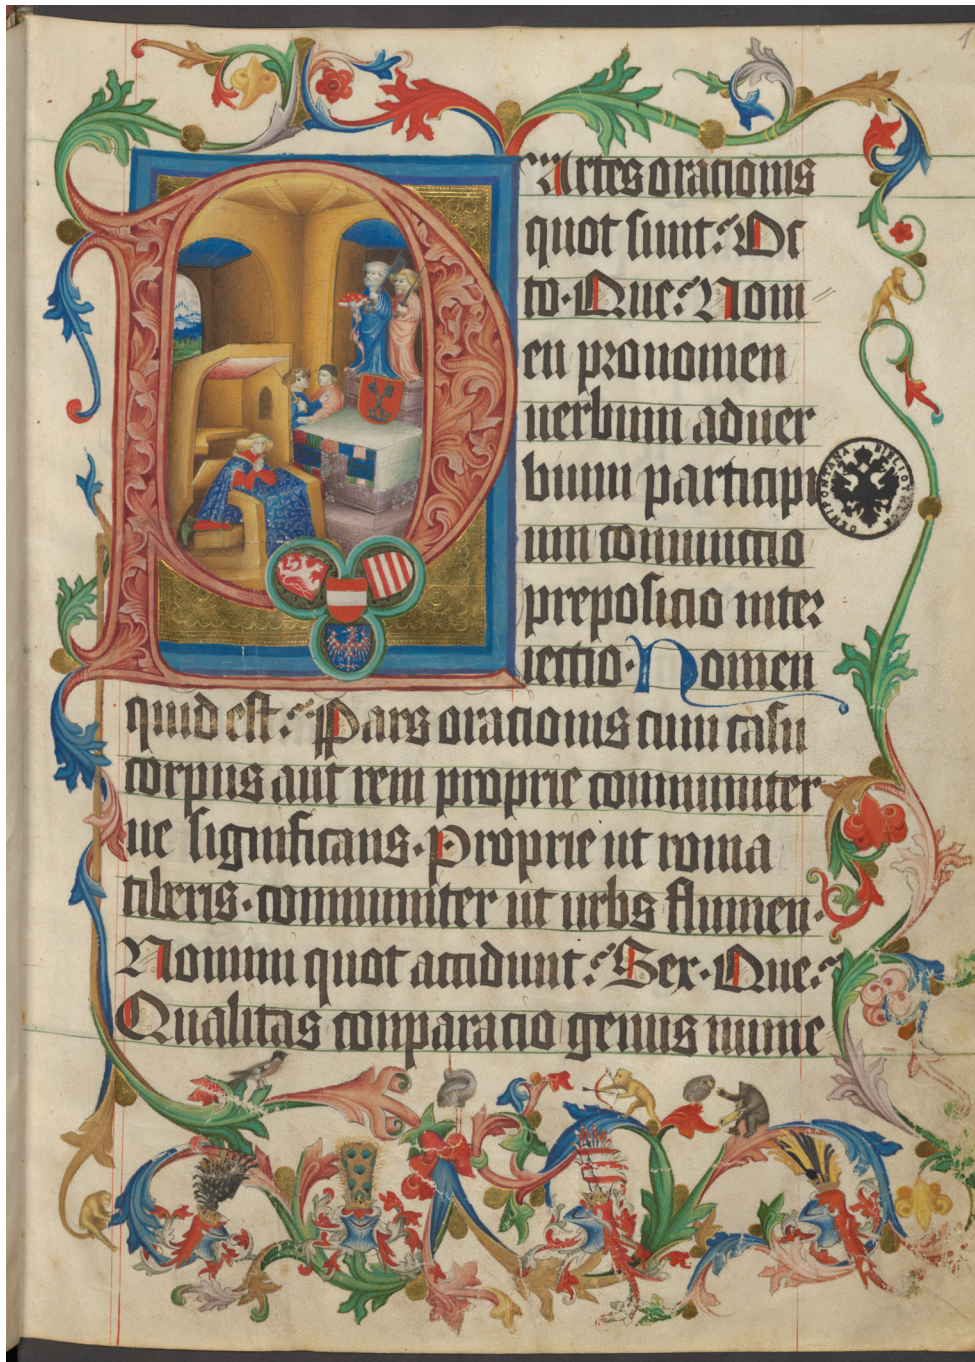 PArtes orationis
quot sunt? Oc
to. Que? Nom
en pronomen
uerbum aduer
bium participi
um coniunctio
prepositio inter
iectio. Nomen
quid est? Pars orationis cum casu
corpus aut rem proprie communiter
ue significans. Proprie ut roma
tiberis. communiter ut urbs flumen.
Nomini quot accidunt? Sex. Que?
Qualitas conparacio genus nume
1